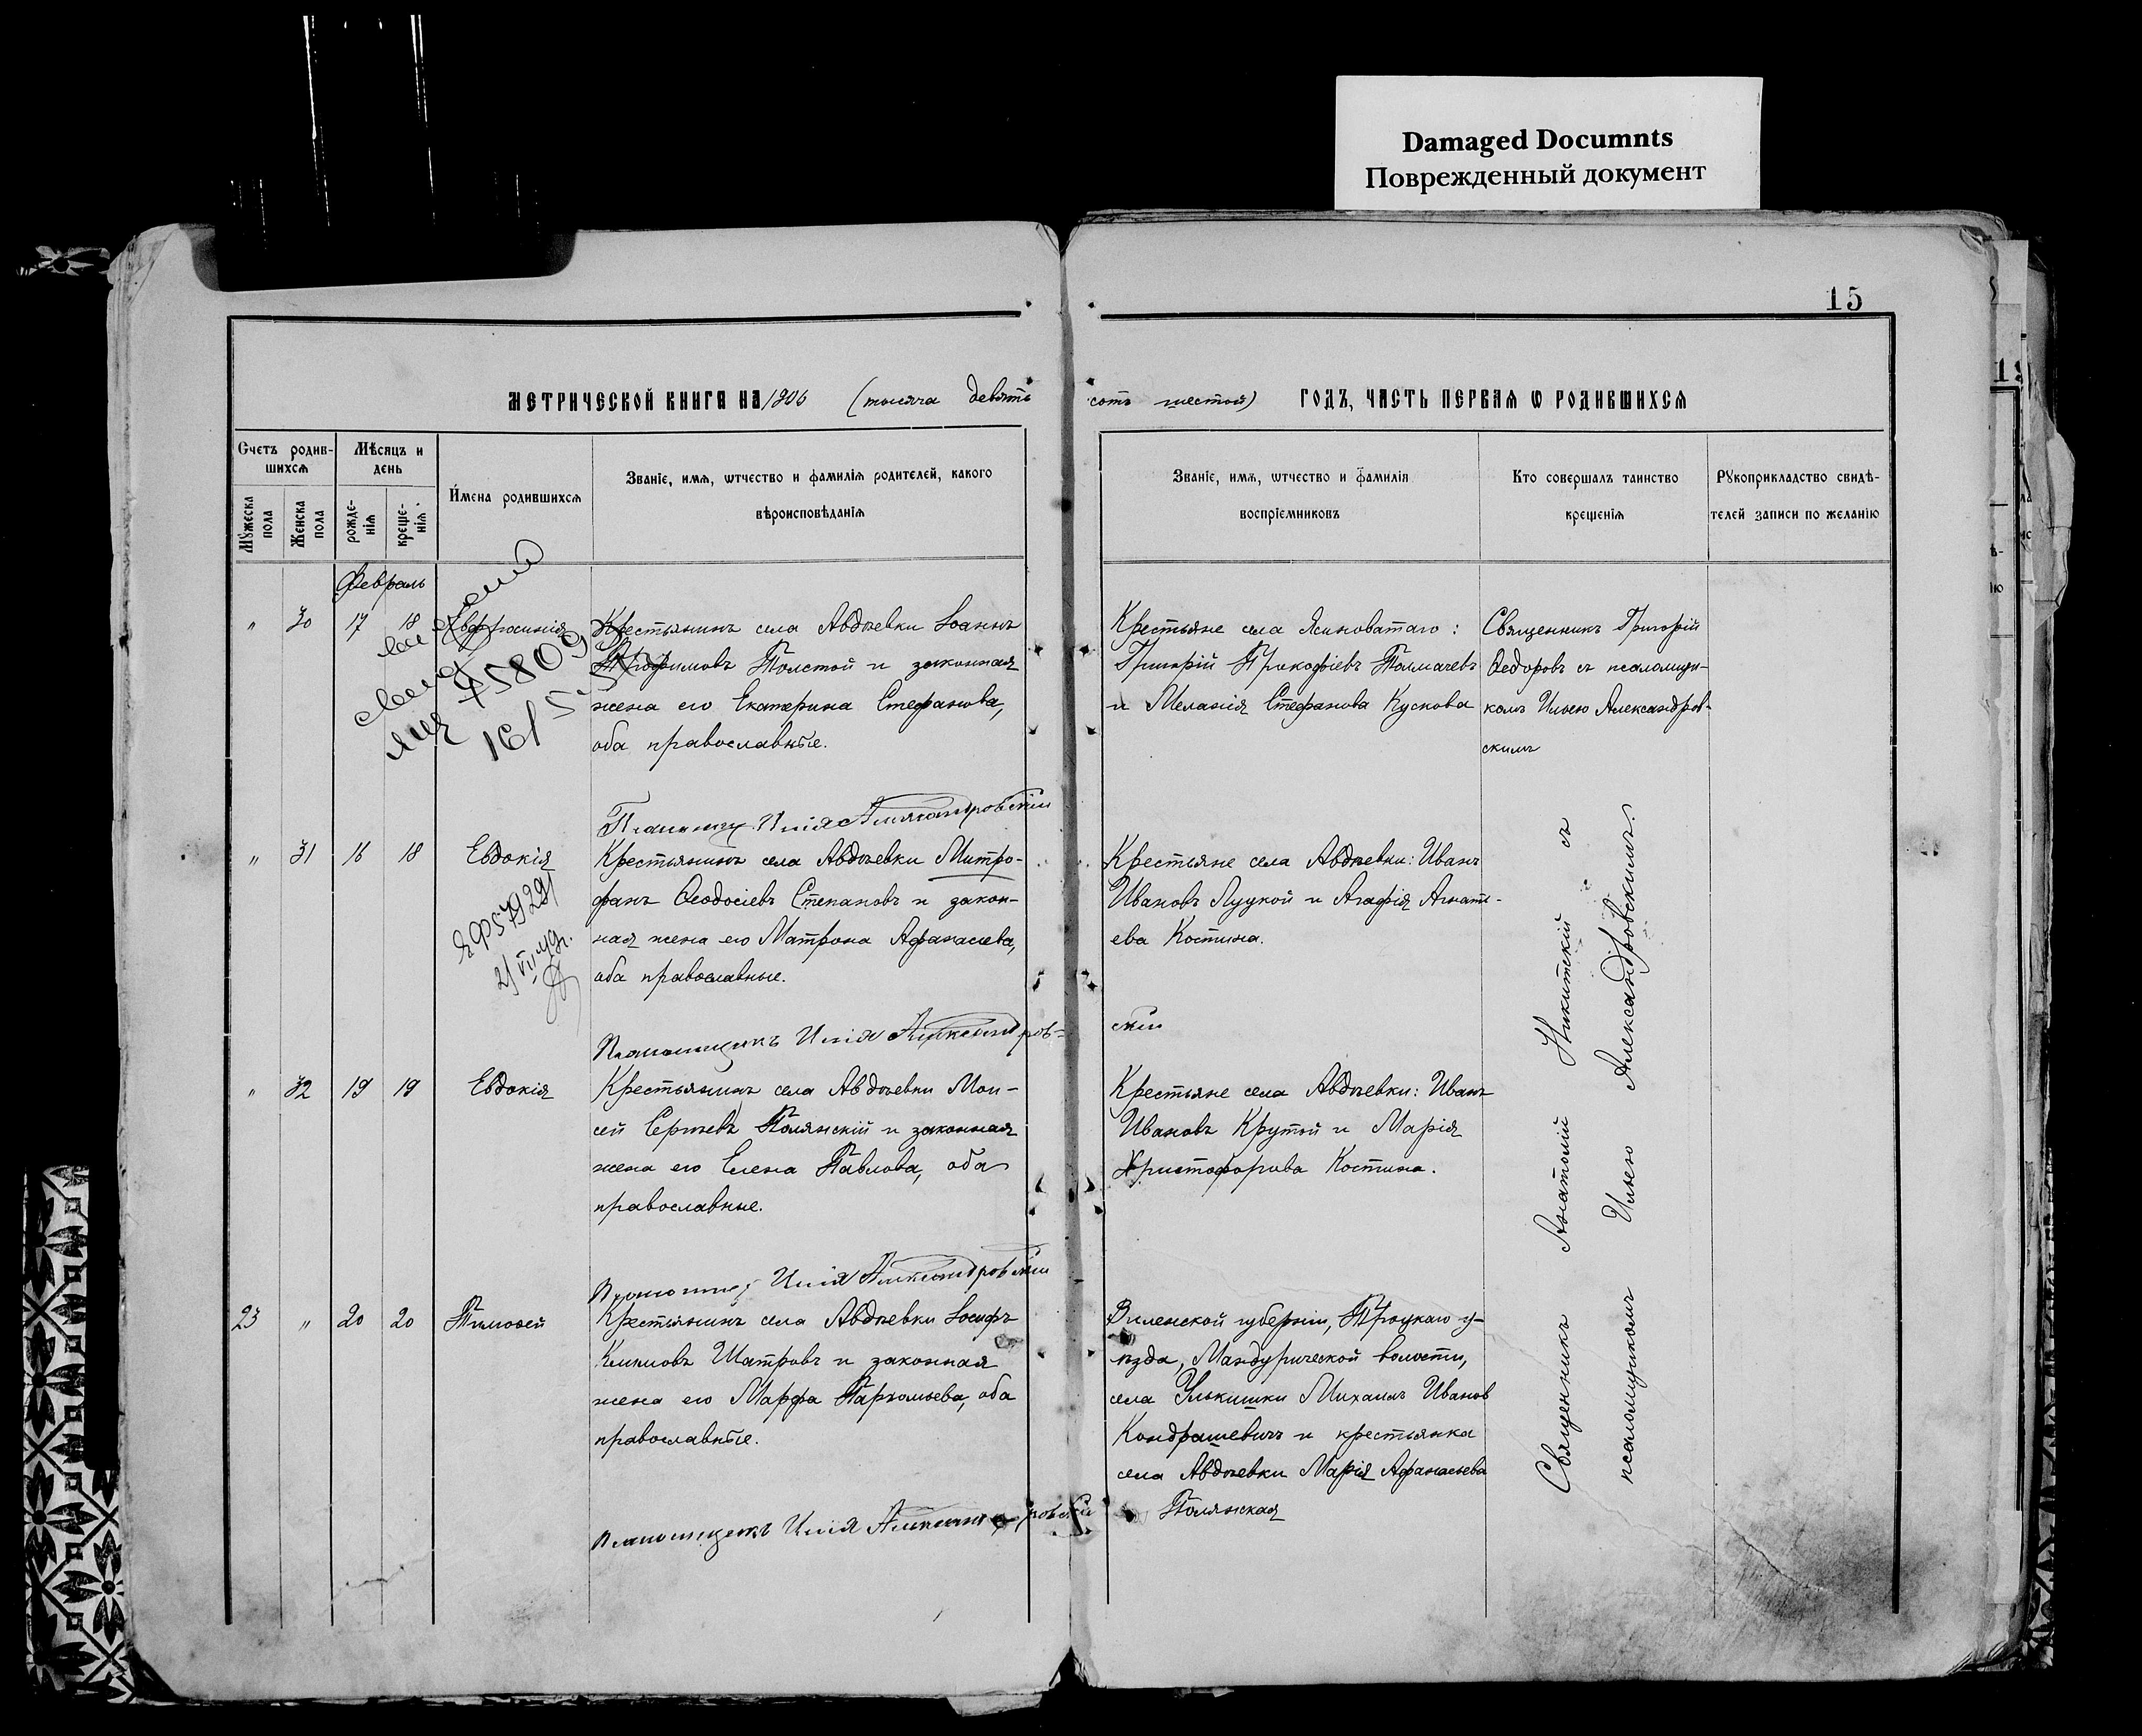 Damaged Documnts
Поврежденный документ
15
МЕТРИЧЕСКОЙ КНИГИ НА 1906 (тысяча девять
сотъ шестой) ГОДЪ, ЧАСТЬ ПЕРВАЯ Ѡ РОДИВШИХСЯ
Счетъ родив-
шихся
Мужеска пола
Женска пола
Мѣсяцъ и
день
рожде-
нія
креще-
нія
Имена родившихся
Званіе, имя, ѡтчество и фамилія родителей, какого
вѣроисповѣданія
Званіе, имя, ѡтчество и фамилія
воспріемниковъ
Кто совершалъ таинство
крещенія
Рукоприкладство свидѣ-
телей записи по желанію
Февраль
" 30 17 18 Евфросинія
Крестьянинъ села Авдѣевки Іоаннъ
Трофимовъ Толстой и законная
жена его Екатерина Стефанова,
оба православные.
Крестьяне села Ясиноватаго:
Григорій Прокофіевъ Толмачевъ
и Меланія Стефанова Кускова
Священникъ Григорій
Ѳедоровъ съ псаломщи-
комъ Ильею Александров-
скимъ
Илія Александровскій
" 31 16 18 Евдокія
Крестьянинъ села Авдѣевки Митро-
фанъ Ѳеодосіевъ Степановъ и закон-
ная жена его Матрона Афанасіева,
оба православные.
Крестьяне села Авдѣевки: Иванъ
Ивановъ Луцкой и Агафія Агнаті-
ева Костина.
Псаломщикъ Илія Александров-
скій
" 32 19 19 Евдокія
Крестьянинъ села Авдѣевки Мои-
сей Сергѣевъ Полянскій и законная
жена его Елена Павлова, оба
православные.
Крестьяне села Авдѣевки: Иванъ
Ивановъ Крутой и Марія
Христофорова Костина.
Илія Александровскій
23 " 20 20 Тимоѳей
Крестьянинъ села Авдѣевки Іосифъ
Климовъ Шатровъ и законная
жена его Марфа Пархомьева, оба
православные.
Виленской губерніи, Троцкаго у-
ѣзда, Мандурической волости,
села Улькишки Михаилъ Иванов
Кондрашевичъ и крестьянка
села Авдѣевки Марія Афанасьева
Полянская
Псаломщикъ Илія Александровскій
Священникъ Анатолій Никитскій съ
псаломщикомъ Ильею Александровскимъ.